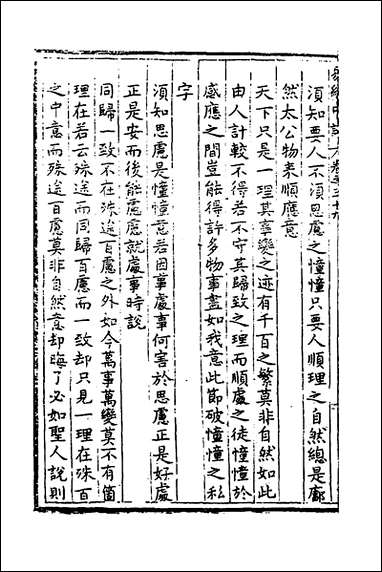 須知要人不須思慮之憧憧只要人順理之自然總是廓
然太公物來順應意
天下只是一理其事變之迹有千百之繁莫非自然如此
由人計較不得若不守其歸致之理而順處之徒憧憧於
感應之間豈能得許多物事盡如我意此節破憧憧之私
字
須知思慮是憧憧意若因事處事何害於思慮正是好處
正是安而後能慮慮就處事時說
同歸一致不在殊途百慮之外如今萬事萬變莫不有箇
理在若云殊途而同歸百慮而一致却只見一理在殊百
之中意而殊途百慮莫非自然意却晦了必如聖人說則